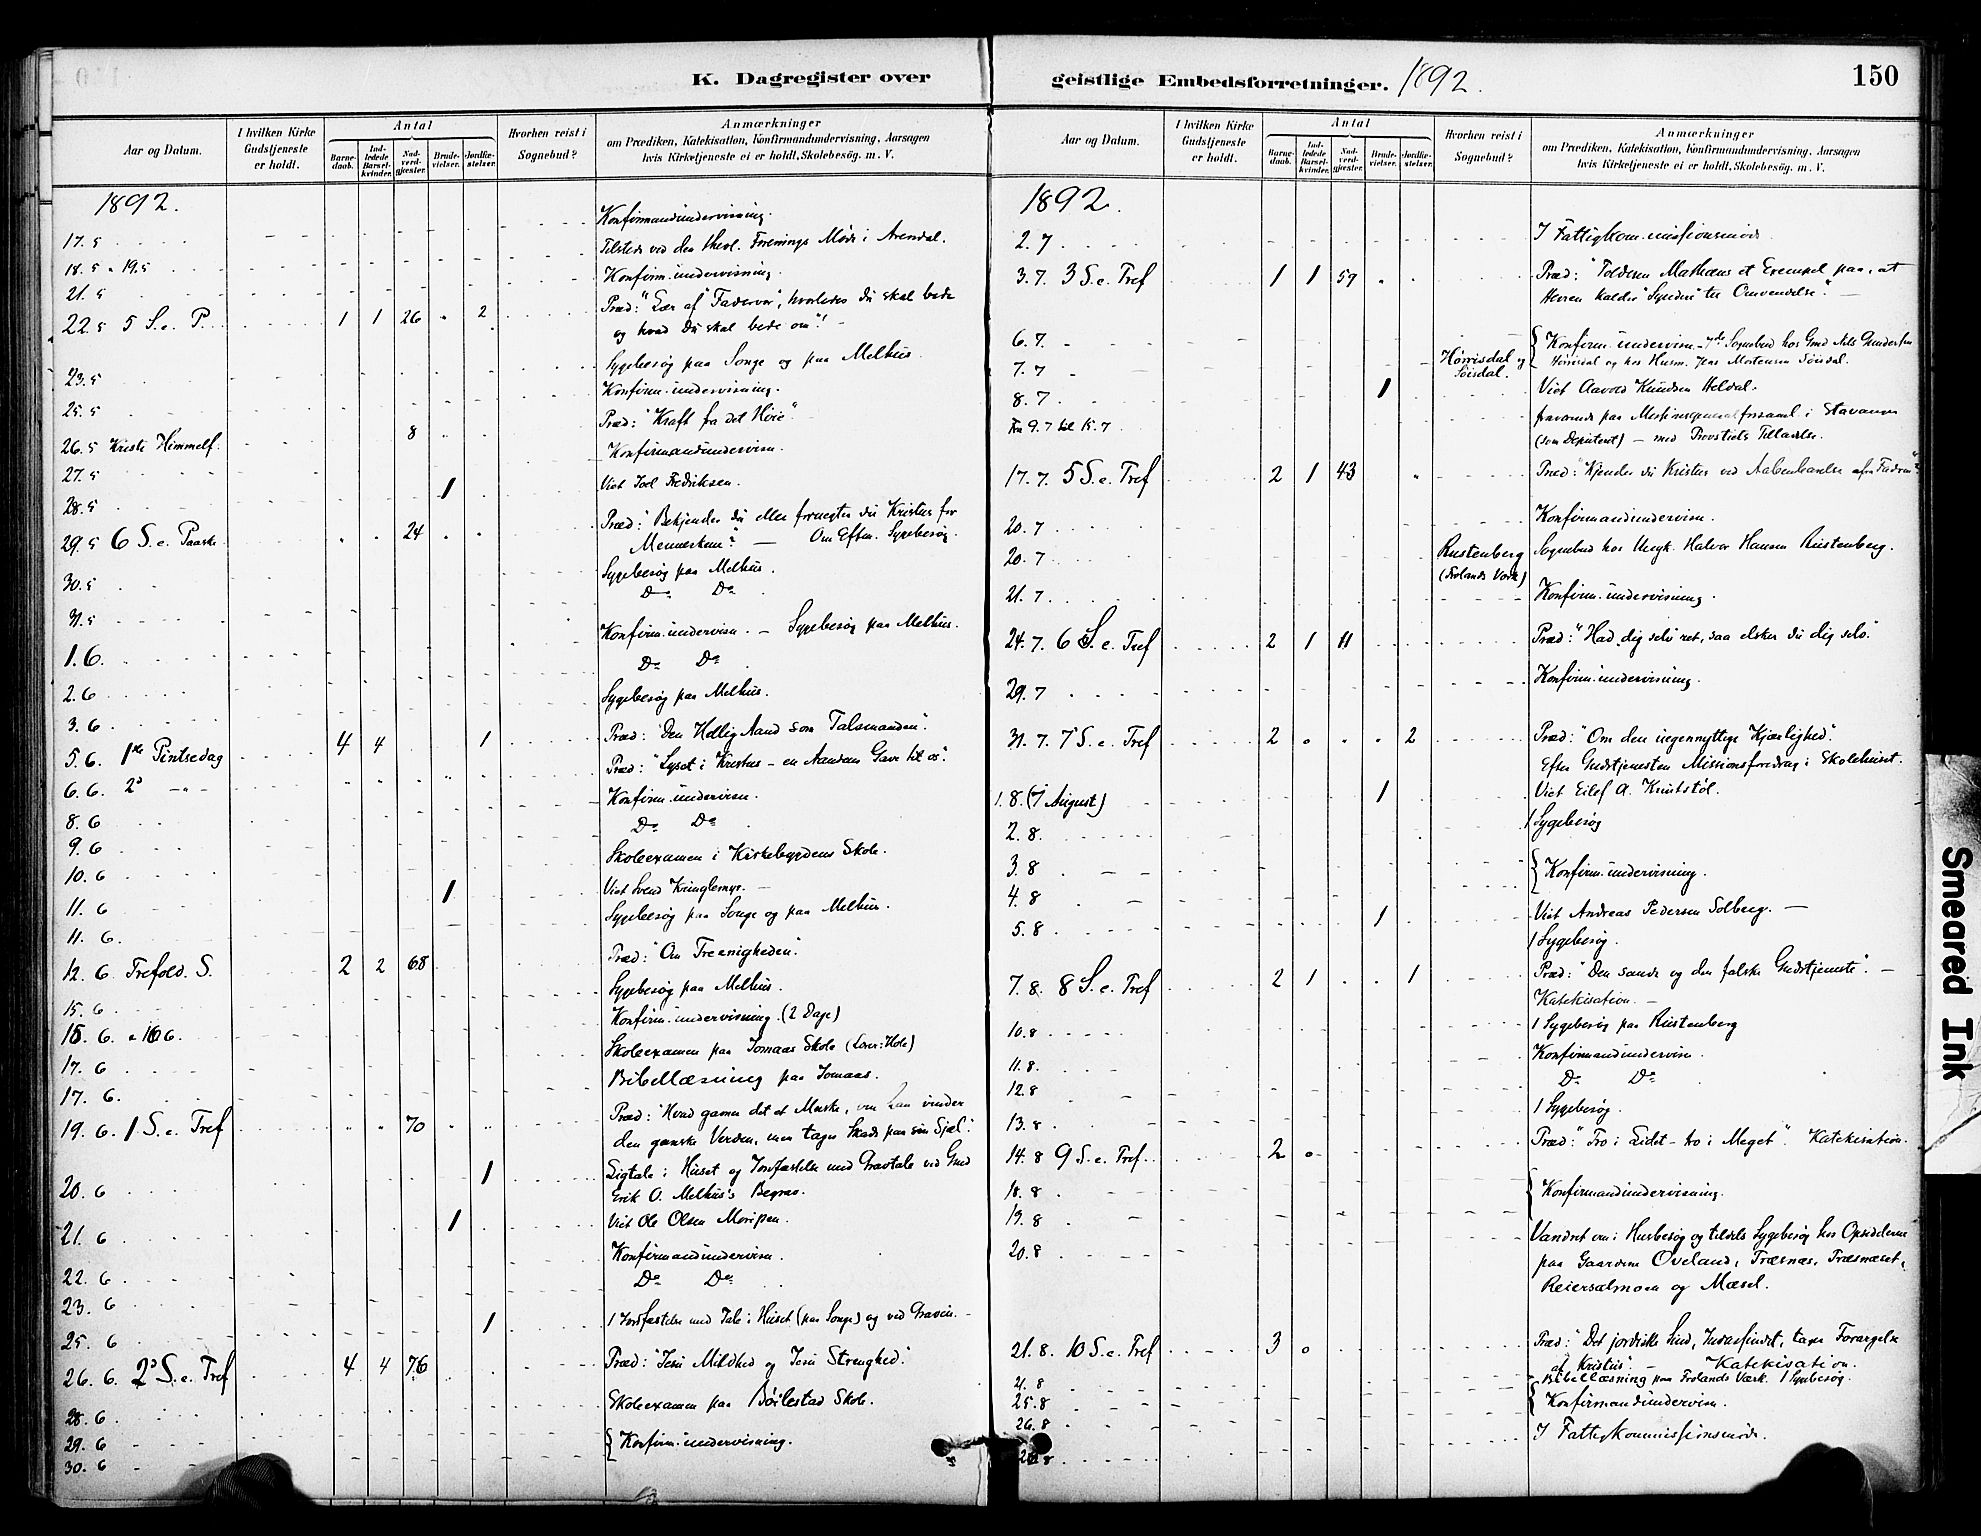 K. Dagregister over
geistlige Embedsforretninger. 1892.
150
Aar og Datum.
I hvilken Kirke Gudstjeneste er holdt.
Antal
Barnedaab.
Indledede Barselkvinder.
Nadverdgjæster.
Brudevielser.
Jordfæstelser.
Hvorhen reist i Sognebud?
Anmærkninger
om Prædiken, Katekisation, Konfirmandundervisning, Aarsagen
hvis Kirketjeneste ei er holdt, Skolebesög. m. V.
1892.
Konfirmandundervisning.
17.5 Tilstede ved den theol. Forenings Møde i Arendal.
18.5 19.5 Konfirm. undervisning
21.5 Præd: "Lær af "Fadervor", hvorledes Du skal bede
22.5 5 S. e. P. 1 1 26 2 og hvad Du skal bede om"! –
Sygebesøg paa Songe og paa Melhus.
23.5 Konfirm. undervisning.
25.5 Præd: "Kraft fra det Høie"
26.5 Kristi Himmelf. 8 Konfirmandundervisn.
27.5 1 Viet Joel Fredriksen.
28.5 Præd: "Bekjender du eller fornegter du Kristus for
29.5 6 S. e. Paaske 24 Menneskene? — Om Eftm. Sygebesøg.
30.5 Sygebesøg paa Melhus.
Do Do
31.5 Konfirm. undervisn. – Sygebesøg paa Melhus.
1.6. Do Do
2.6 Sygebesøg paa Melhus.
3.6
5.6. 1ste Pintsedag 4 4 1 Præd: "Den Hellig Aand som Talsmanden".
6.6. 2d –"– Præd: "Lyset i Kristus – en Aandens Gave til os".
8.6 Konfirm. undervisn.
Do Do
9.6 Skoleexamen i Kirkebygdens Skole.
10.6
11.6 1 Viet Svend Kringlemyr. –
11.6. Sygebesøg paa Songe og paa Melhus.
12.6 Trefold. S. 2 2 68 Præd: "Om Treenigheden".
15.6 Sygebesøg paa Melhus.
15.6. 16.6. Konfirm. undervisning. (2 Dage)
17.6 Skoleexamen paa Jomaas Skole
17.6. Bibellæsning paa Jomaas.
19.6. 1 S. e. Tref 70 Præd: "Hvad gavner det et Menske, om han vinder
den ganske Verden, men tager Skade paa sin Sjæl".
20.6 1 Ligtale i Huset og Jordfæstelse med Gravtale ved Gmd
Erik O. Melhus's Begrav.
21.6 1 Viet Ole Olsen Moripen.
22.6 Konfirmandundervisn.
23.6 Do Do
25.6 1 1 Jordfæstelse med Tale i Huset (paa Songe) og ved Graven. –
26.6. 2d S. e. Tref 4 4 76 Præd: "Jesu Mildhed og Jesu Strenghed".
28.6. Skoleexamen paa Bøilestad Skole.
29.6 Konfirm. undervisning.
30.6
Aar og Datum.
I hvilken Kirke Gudstjeneste er holdt.
Antal
Barnedaab.
Indledede Barselkvinder.
Nadverdgjæster.
Brudevielser.
Jordfæstelser.
Hvorhen reist i Sognebud?
Anmærkninger
om Prædiken, Katekisation, Konfirmandundervisning, Aarsagen
hvis Kirketjeneste ei er holdt, Skolebesög. m. V.
1892.
2.7 I Fattigkommissionsmøde
3.7. 3 S. e. Tref 1 1 57 Præd: "Tolderen Mathæus et Exempel paa, at
Herren kalder "Syndere" til Omvendelse". –
6.7. Konfirm. undervisn. – Sognebud hos Gmd Nils Gundersen
7.7 Hørrisdal og Søisdal. Hørrisdal og hos Husm. Jens Mortensen Søisdal.
8.7 1 Viet Aavold Knudsen Heldal.
Fra 9.7 til 15.7 fraværende paa Missionsgeneralforsaml. i Stavanger
(som Deputeret) – med Provstiets Tilladelse.
17.7. 5 S. e. Tref 2 1 43 Præd: "Kjender du Kristus ved Aabenbarelse af Faderen"?
20.7 Konfirmandundervisn.
20.7 Rustenberg (Frolands Værk) Sognebud hos Ungk. Halvor Hansen Rustenberg.
21.7 Konfirm. undervisning.
24.7. 6 S. e. Tref 2 1 11 Præd: "Had dig selv ret, saa elsker du dig selv."
29.7 Konfirm. undervisning.
31.7. 7 S. e. Tref 2 2 Præd: "Om den uegennyttige Kjærlighed".
Efter Gudstjenesten Missionsforedrag i Skolehuset.
1.8. (7 August) 1 Viet Eilef A. Knutstøl.
2.8. 1 Sygebesøg
3.8 Konfirm. undervisning.
4.8
5.8 1 Viet Andreas Pedersen Solberg. –
1 Sygebesøg.
7.8. 8 S. e. Tref 2 1 1 Præd: "Den sande og den falske Gudstjeneste". –
Katekisation. –
10.8 1 Sygebesøg paa Rustenberg
11.8. Konfirmandundervisn.
12.8 Do Do
13.8 1 Sygebesøg.
14.8 9 S. e. Tref. 2 0 Præd: "Tro i Lidet – tro i Meget". Katekisation.
18.8 Konfirmandundervisning.
19.8
20.8 Vandret om i Husbesøg og tildels Sygebesøg hos Opsidderne
paa Gaardene Oveland, Træsnæs, Træsnæset,
Reiersølmoen og Mæsel.
21.8. 10 S. e. Tref 3 0 Præd: "Det jordiske Sind, tager Forargelse
af Kristus". – Katekisation.
21.8 Bibellæsning paa Frolands Værk. 1 Sygebesøg.
25.8 Konfirmandundervisn.
26.8
I Fattigkommissionsmøde.
Smeared Ink